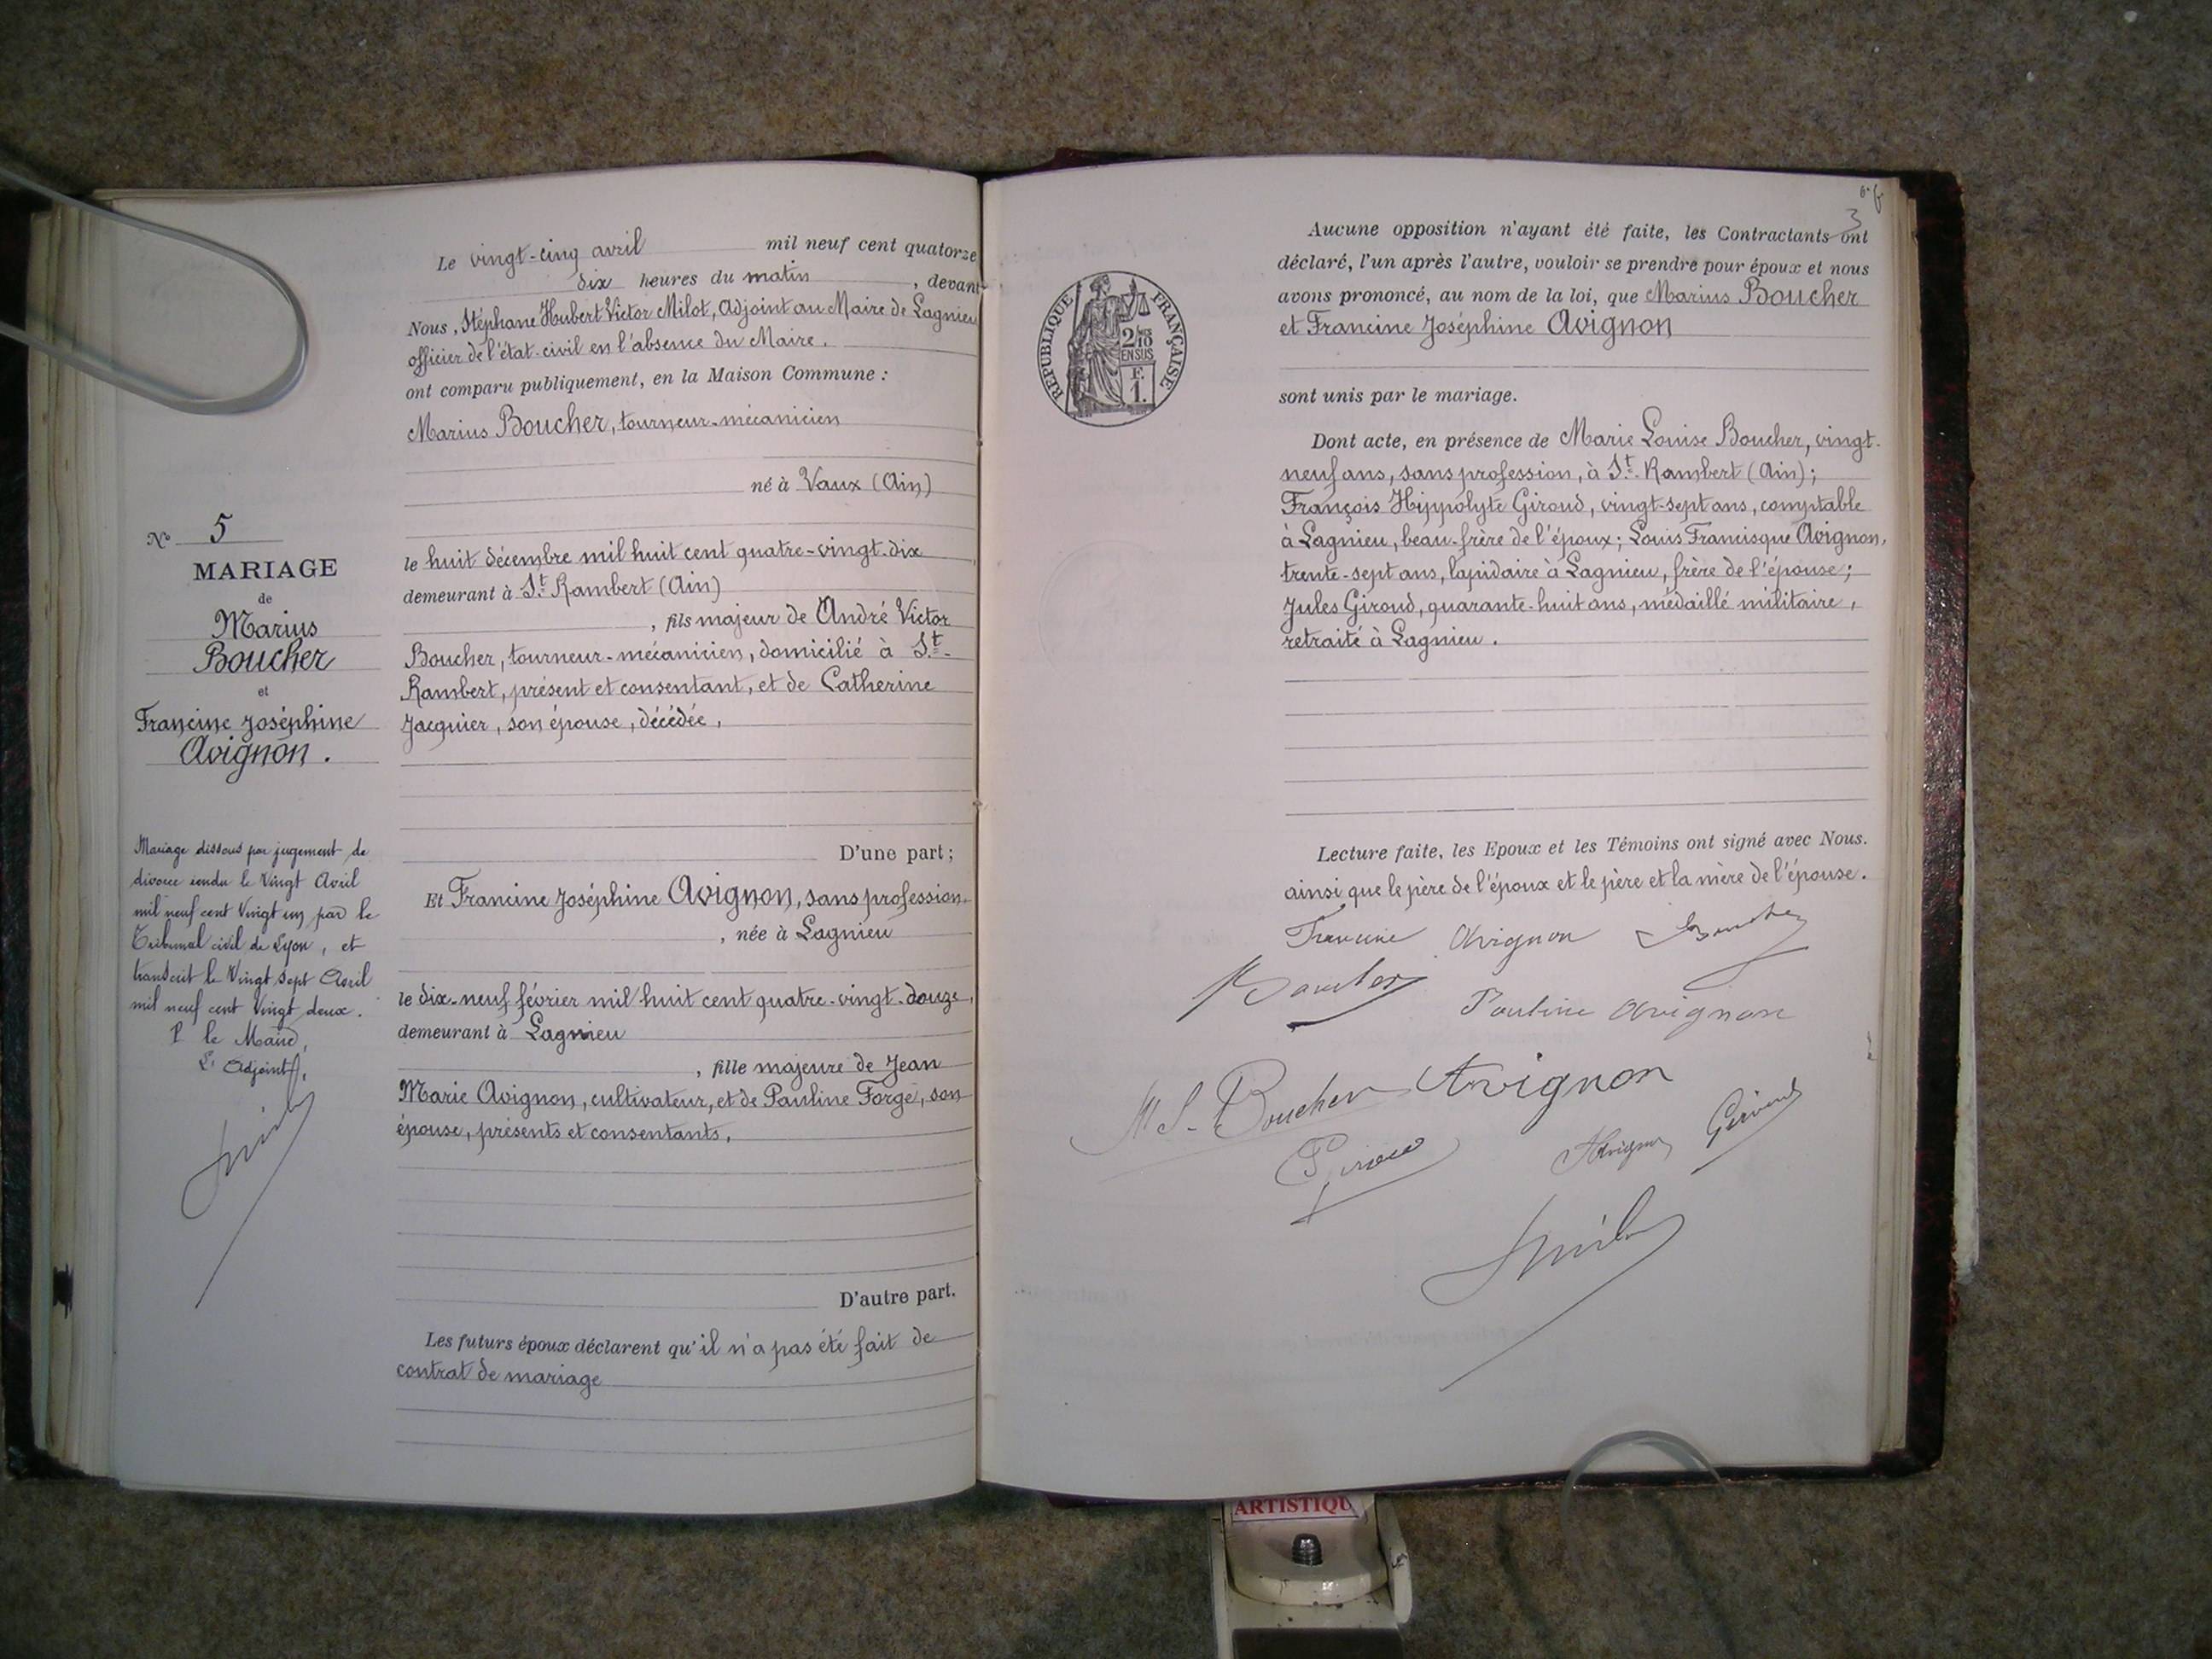 Le vingt-cinq avril mil neuf cent quatorze
dix heures du matin, devant
Nous, Stéphane Hubert Victor Milot, Adjoint au Maire de Lagnieu
officier de l'état-civil en l'absence du Maire.
ont comparu publiquement, en la Maison Commune :
Marius Boucher, tourneur-mécanicien
né à Vaux (Ain)
le huit décembre mil huit cent quatre-vingt-dix
demeurant à St. Rambert (Ain)
, fils majeur de André Victor
Boucher, tourneur-mécanicien, domicilié à St.-
Rambert, présent et consentant, et de Catherine
Jacquier, son épouse, décédée,
D'une part ;
Et Francine Joséphine Avignon, sans profession
, née à Lagnieu
le dix-neuf février mil huit cent quatre-vingt-douze,
demeurant à Lagnieu
, fille majeure de Jean
Marie Avignon, cultivateur, et de Pauline Forge, son
épouse, présents et consentants,
D'autre part.
Les futurs époux déclarent qu'il n'a pas été fait de
contrat de mariage
No 5
MARIAGE
de
Marius
Boucher
et
Francine Joséphine
Avignon.
Mariage dissous par jugement de
divorce rendu le Vingt Avril
mil neuf cent Vingt un par le
Tribunal civil de Lyon, et
transcrit le Vingt sept Avril
mil neuf cent Vingt deux.
P le Maire,
L'Adjoint,
3
Aucune opposition n'ayant été faite, les Contractants ont
déclaré, l'un après l'autre, vouloir se prendre pour époux et nous
avons prononcé, au nom de la loi, que Marius Boucher
et Francine Joséphine Avignon
sont unis par le mariage.
RÉPUBLIQUE FRANÇAISE
2/10
EN SUS
F.
1.
Dont acte, en présence de Marie Louise Boucher, vingt-
neuf ans, sans profession, à St. Rambert (Ain) ;
François Hippolyte Giroud, vingt-sept ans, comptable
à Lagnieu, beau-frère de l'époux ; Louis Francisque Avignon,
trente-sept ans, lapidaire à Lagnieu, frère de l'épouse ;
Jules Giroud, quarante-huit ans, médaillé militaire,
retraité à Lagnieu.
Lecture faite, les Epoux et les Témoins ont signé avec Nous.
ainsi que le père de l'époux et le père et la mère de l'épouse.
Francine Avignon Boucher
Boucher
Pauline Avignon
M L. Boucher Avignon
Avignon Giroud
ARTISTIQU